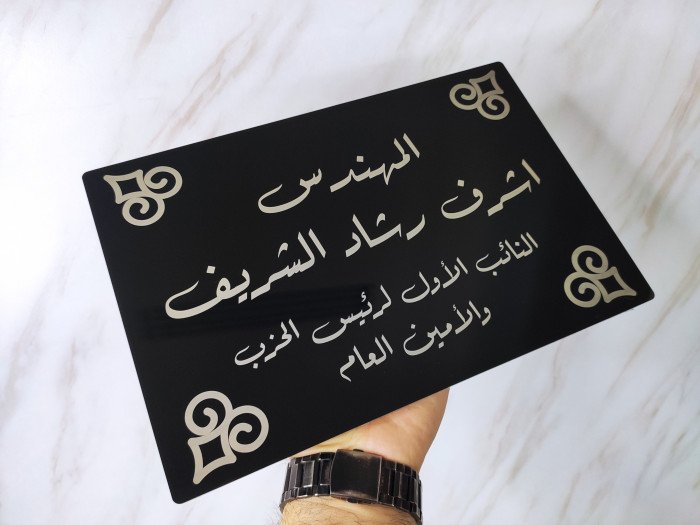 المهندس
اشرف رشاد الشريف
النائب الأول لرئيس الحزب
والأمين العام